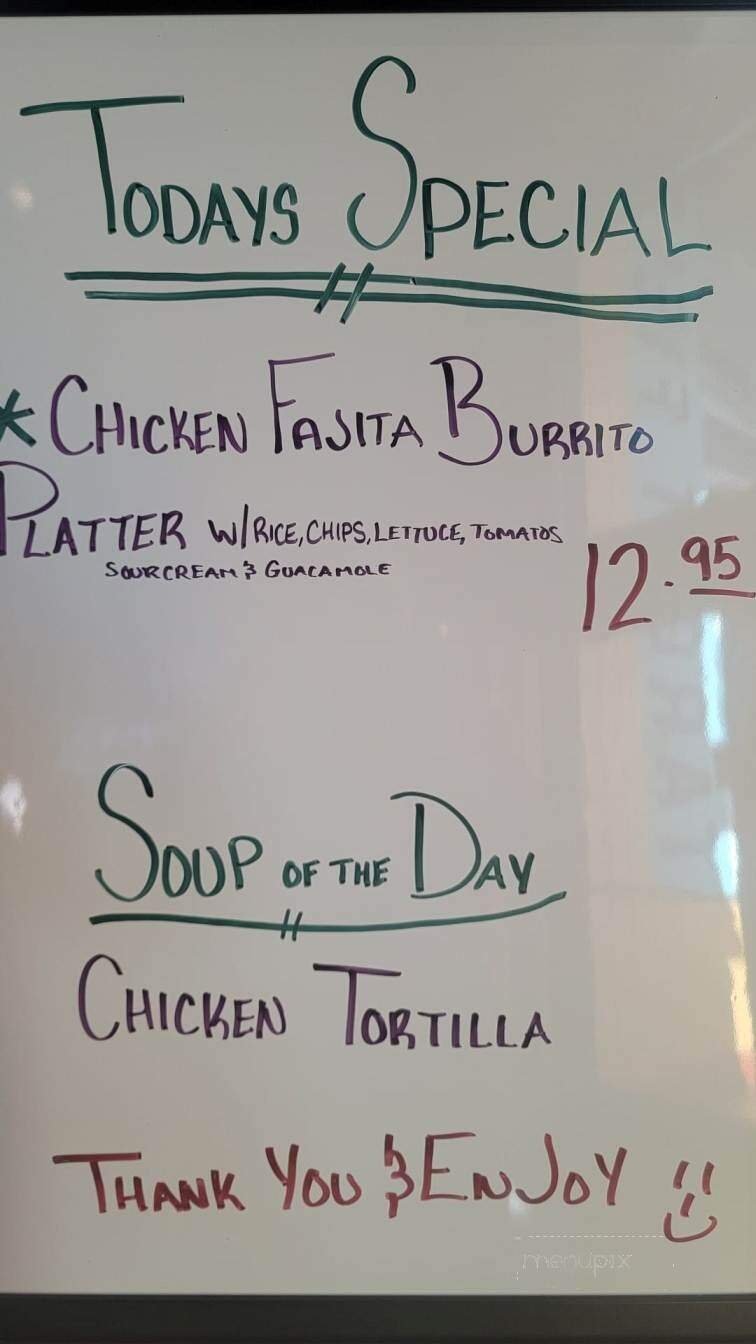 TODAYS SPECIAL
* CHICKEN FAJITA BURRITO
PLATTER W/RICE, CHIPS, LETTUCE, TOMATOS
SOURCREAM & GUACAMOLE
12.95
SOUP OF THE DAY
CHICKEN TORTILLA
THANK YOU & ENJOY
menupix